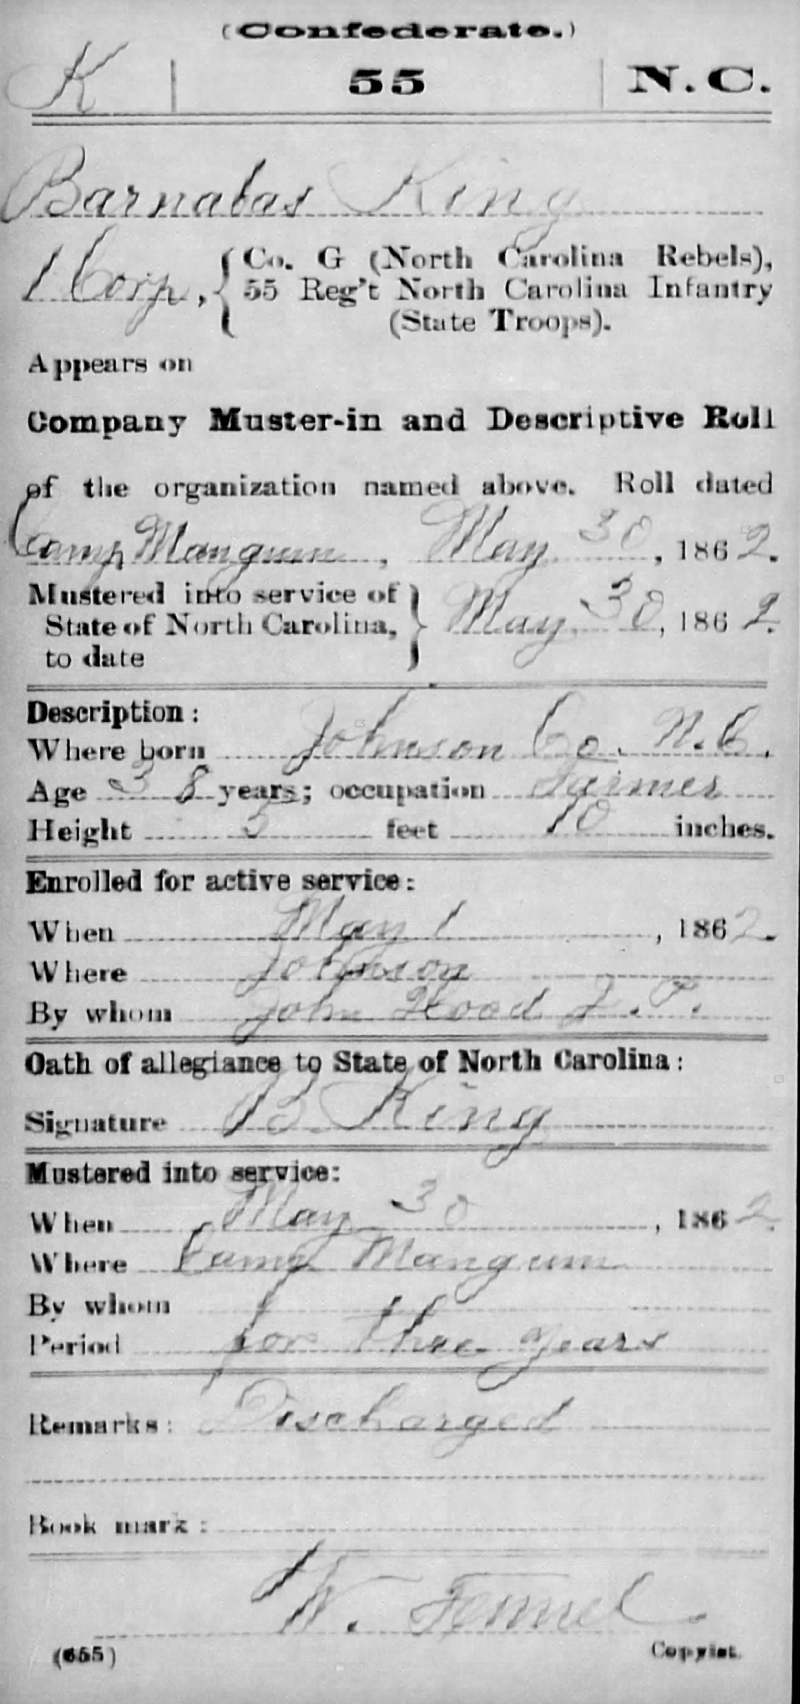 (Confederate.)
K | 55 | N.C.
Barnabas King
1 Corp, { Co. G (North Carolina Rebels),
55 Reg't North Carolina Infantry
(State Troops).
Appears on
Company Muster-in and Descriptive Roll
of the organization named above. Roll dated
Camp Mangum, May 30, 1862.
Mustered into service of
State of North Carolina, } May 30, 1862.
to date
Description:
Where born Johnson Co. N.C.
Age 38 years; occupation Farmer
Height 5 feet 10 inches.
Enrolled for active service:
When May 1, 1862.
Where Johnson
By whom John Hood J. P.
Oath of allegiance to State of North Carolina:
Signature B King
Mustered into service:
When May 30, 1862.
Where Camp Mangum
By whom
Period for three years
Remarks: Discharged
Book mark:
W. Fennel
(655) Copyist.